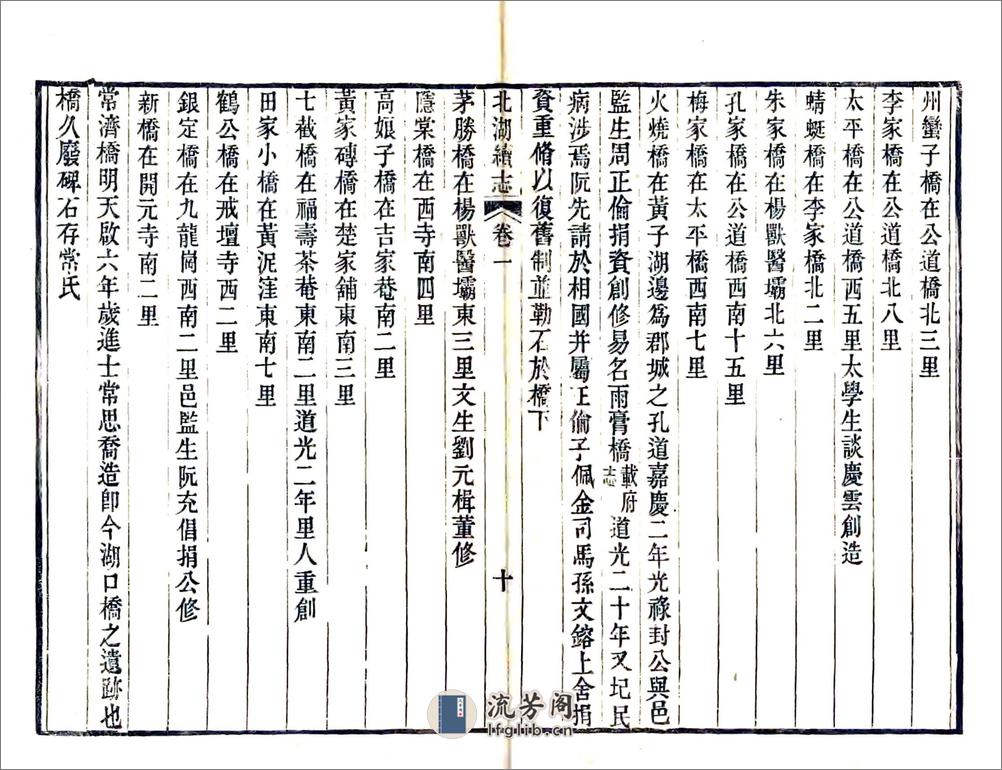 州蠻子橋在公道橋北三里
李家橋在公道橋北八里
太平橋在公道橋西五里太學生談慶雲創造
蜻蜓橋在李家橋北二里
朱家橋在楊獸醫壩北六里
孔家橋在公道橋西南十五里
梅家橋在太平橋西南七里
火燒橋在黃子湖邊爲郡城之孔道嘉慶二年光祿封公與邑
監生周正倫捐資創修易名雨膏橋載府志道光二十年又圮民
病涉焉阮先請於相國并屬正倫子佩金司馬孫文鎔上舍捐
資重脩以復舊制並勒石於橋下
北湖續志 卷一 十
茅勝橋在楊獸醫壩東三里文生劉元楫董修
隱棠橋在西寺南四里
高娘子橋在吉家菴南二里
黃家磚橋在楚家舖東南三里
七截橋在福壽茶菴東南二里道光二年里人重創
田家小橋在黃泥窪東南七里
鶴公橋在戒壇寺西二里
銀定橋在九龍崗西南二里邑監生阮充倡捐公修
新橋在開元寺南二里
常濟橋明天啟六年歲進士常思喬造卽今湖口橋之遺跡也
橋久廢碑石存常氏
流芳阁
lfglib.cn